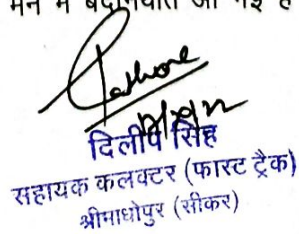 मन में बदनियति आ गई है
Rathore
दिलीप सिंह
सहायक कलक्टर (फास्ट ट्रैक)
श्रीमाधोपुर (सीकर)